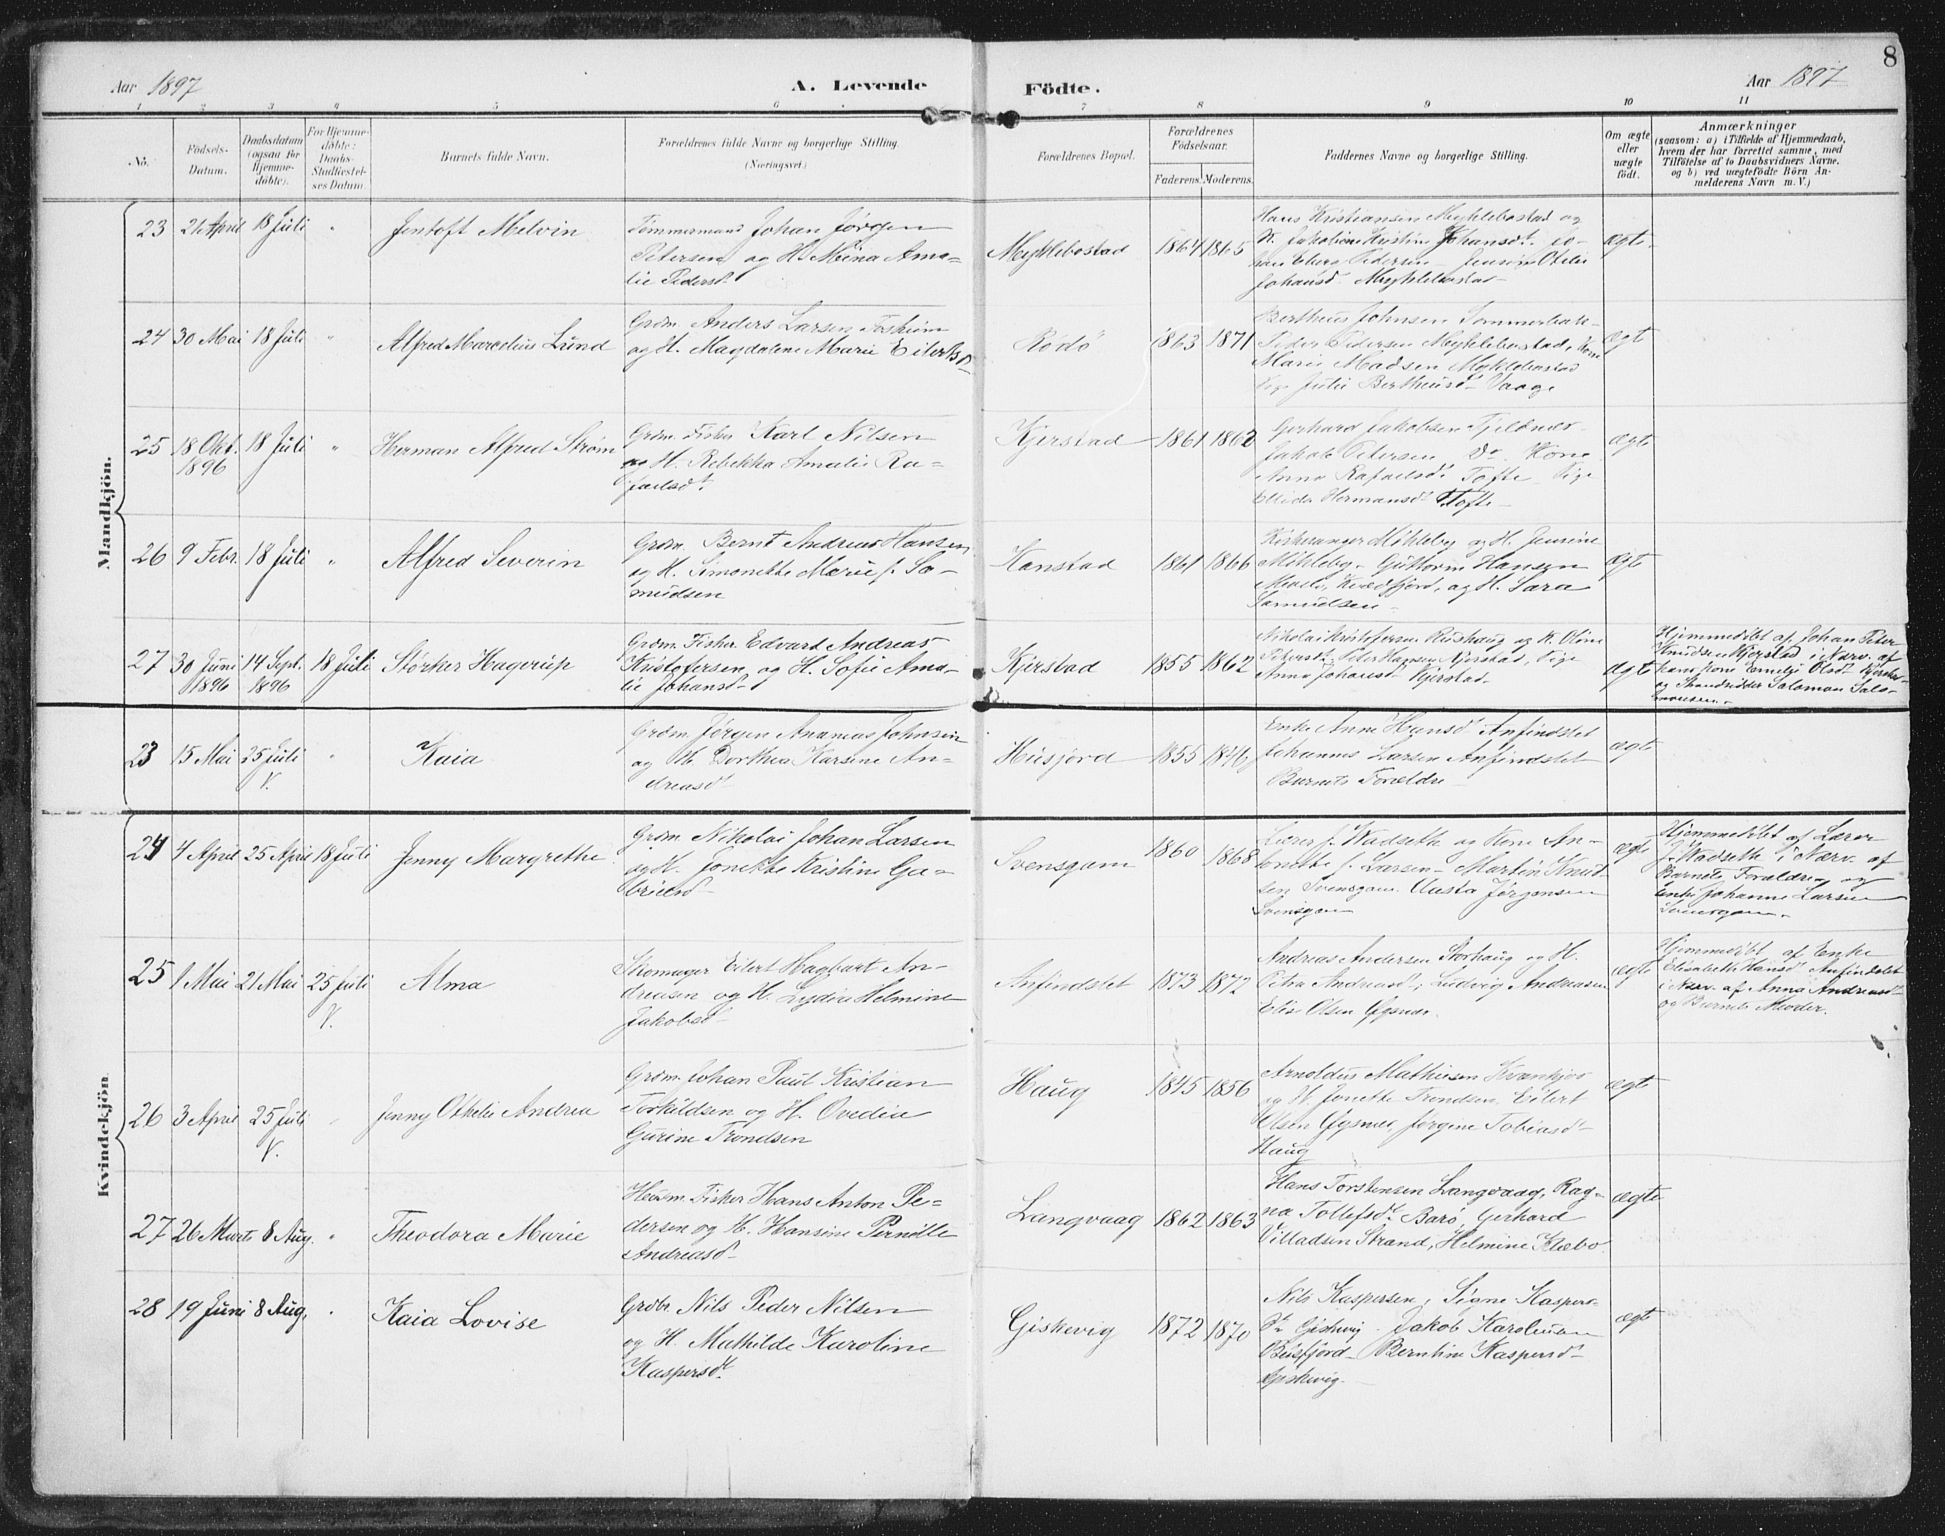 8
Aar 1897
A. Levende
Födte.
Aar 1897
1 2 3 4 5 6 7 8 9 10 11
No.
Födsels-
Datum.
Daabsdatum
(ogsaa for
Hjemme-
döbte).
For Hjemme-
döbte:
Daabs-
Stadfæstel-
ses Datum.
Barnets fulde Navn.
Forældrenes fulde Navne og borgerlige Stilling.
(Næringsvei.)
Forældrenes Bopæl.
Forældrenes
Födselsaar.
Faderens. Moderens.
Faddernes Navne og borgerlige Stilling.
Om ægte
eller
uægte
födt.
Anmærkninger
(saasom: a) i Tilfælde af Hjemmedaab,
hvem der har forrettet samme, med
Tilföielse af to Daabsvidners Navne.
og b) ved uægtefödte Börn An-
melderens Navn m. V.)
Mandkjön.
23 21 April 18 Juli " Jentoft Melvin
Tømmermand Johan Jørgen
Petersen og H. Mina Ama-
lie Pedersd.
Myklebostad 1864 1865
Hans Kristiansen Myklebostad og
H. Jakobine Kristine Johansd. Jo-
han Eberg Pedersen Jensine Otelie
Johansd. Myklebostad
ægte
24 30 Mai 18 Juli " Alfred Marcelius Lund
Grdm. Anders Larsen Forshaim
og H. Magdalene Marie Eilertsd.
Rødø 1863 1871
Bertheus Johnsen Sommerbak-
Peder Pedersen Myklebostad, Kone
Marie Madsen Myklebostad
Pige Julie Bertheusd. Vaage
ægte
25 18 Okt. 1896 18 Juli " Herman Alfred Strøm
Grdm. Fisker Karl Nilsen
og H. Rebekka Amalie Ra-
faelsd.
Kjerstad 1861 1862
Gerhard Jakobsen Fjeldnæs
Jakob Petersen Do. Kone
Anna Rafaelsd. Tofte Pige
Ellida Hermansd. Tofte
ægte
26 9 Febr. 18 Juli " Alfred Severin
Grdm. Bernt Andreas Hansen
og H. Simonette Marie f. Sa-
mudsen
Kanstad 1861 1866
Kirkesanger Mikleby og H. Jensine
Mikleby, Guttorm Hansen
Kvædfjord, og H. Sara
Samuelsen
ægte
27 30 Juni 1896 14 Sept. 1896 18 Juli Størker Hagerup
Grdm. Fisker Edvart Andreas
Kristofersen og H. Sofie Ama-
lie Johansd.
Kjerstad 1855 1862
Nikolai Kristofersen Rushaug og K. Oline
Petersd. Peter Hansen Kjerstad, Pige
Anna Johansd. Kjerstad
ægte
Hjemmedöbt af Johan Peter
Knudsen Kjerstad i Nærv. af
hans Kone Emelie Olsd. Kjerstad
og Skandridder Salomon Salo-
monsen.
23 15 Mai 25 Juli V. " Kaia
Grdm. Jørgen Ananias Johnsen
og H. Dorthea Karsine An-
dreasd.
Husjord 1855 1846
Enke Anne Hansd. Anfindslet
Johannes Larsen Anfindslet
Barnets Forældre
ægte
Kvindekjön
24 4 April 25 April 18 Juli Jenny Margrethe
Grdm. Nikolai Johan Larsen
og H. Jonette Kristine Ga-
brielsd.
Svensgam 1860 1868
Lærer J. Wadseth og Kone An-
onette f. Larsen Martin Knud-
sen Svensgam Aasta Jørgensen
Svensgam
ægte
Hjemmedöbt af Lærer
J. Wadseth i Nærv. af
Barnets Forældre og
Enke Johanne Larsen
Svensgam.
25 1 Mai 21 Mai 25 Juli V. Alma
Skomager Eilert Hagbart An-
dreasen og H. Lydia Helmine
Jakobsd.
Anfindslet 1873 1872
Andreas Andersen Storhaug og H.
Petra Andreasd.; Ludvig Andreasen
Elis Olsen Gysnæs.
ægte
Hjemmedöbt af Enke
Elisabeth Hansd. Anfindslet
i Nærv. af Anna Andreasd.
og Barnets Moder.
26 3 April 25 Juli V. " Jenny Othelie Andrea
Grdm. Johan Paul Kristian
Torkildsen og H. Ovedia
Gurine Trondsen
Haug 1845 1856
Arnoldus Mathiesen Kvænkjos
og H. Jonette Trondsen, Eilert
Olsen Gysnæs, Jørgine Tobiasd.
Haug
ægte
27 26 Marts 8 Aug. " Theodora Marie
Husm. Fisker Hans Anton Pe-
dersen og H. Hansine Pernille
Andreasd.
Langvaag 1862 1863
Hans Torstensen Langvaag, Rag-
na Tollefsd. Barø, Gerhard
Villadsen Strand, Helmine Klæbo
ægte
28 19 Juni 8 Aug. " Kaia Lovise
Grdbr. Nils Peder Nilsen
og H. Mathilde Karoline
Kaspersd.
Giskevig 1872 1870
Nils Kaspersen, Signe Kaspers-
d. Giskevig. Jakob Karoliusen
Busfjord Berntine Kaspersd.
Giskevig
ægte